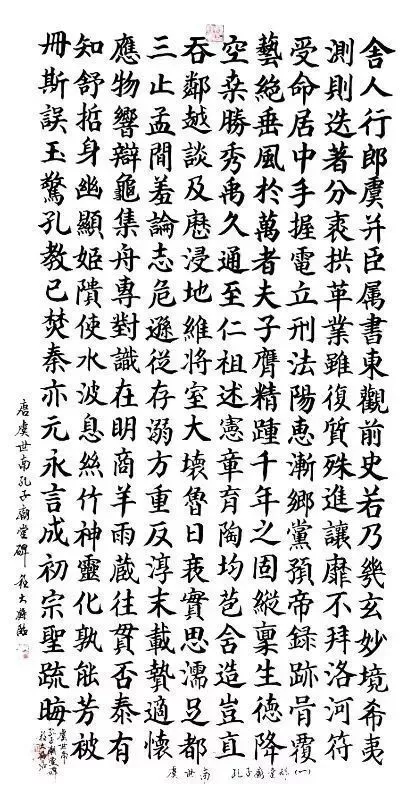 舍人行郎虞并臣属書東觀前史若乃幾玄妙境希夷
測則迭著分衷拱革業雖復質殊進讓靡不拜洛河符
受命居中手握電立刑法陽惠漸鄉黨預帝録跡骨覆
藝絕垂風於萬者夫子膺精踵千年之固縱稟生德降
空桒勝秀禹久通至仁祖述憲章育陶均苞舍造豈直
吞鄰越談及歷浸地維將室大壞魯日喪實思濡足都
三止孟間羞論志危遜從存溺方重反淳末載贄適懷
應物響辯龜集舟專對識在明商羊雨蔵往貫否泰有
知舒哲身幽顯姬隤使水波息絲竹神靈化孰能芳被
冊斯誤玉驚孔教已焚秦亦元永言成初宗聖疏晦
唐虞世南孔子廟堂碑
虞世南 孔子廟堂碑(一)